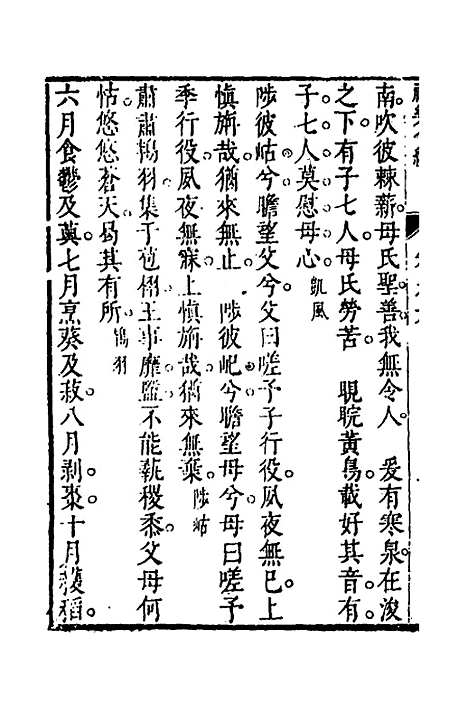 南吹彼棘薪母氏聖善我無令人　爰有寒泉在浚
之下有子七人母氏勞苦　睍睆黃鳥載好其音有
子七人莫慰母心凱風
陟彼岵兮瞻望父兮父曰嗟予子行役夙夜無已上
慎旃哉猶來無止　陟彼屺兮瞻望母兮母曰嗟予
季行役夙夜無寐上慎旃哉猶來無棄陟岵
肅肅鴇羽集于苞栩王事靡盬不能蓺稷黍父母何
怙悠悠蒼天曷其有所鴇羽
六月食鬱及薁七月烹葵及菽八月剝棗十月穫稻